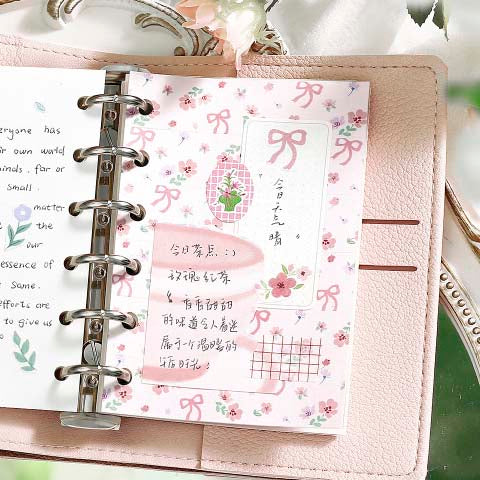 everyone has
own world
minds. far or
small.
matter
the
our
essence of
same.
efforts are
to give us
今日天气
晴。
今日茶点 :)
玫瑰红茶
香香甜甜
的味道令人着迷
属于一个温暖的
午后时光!